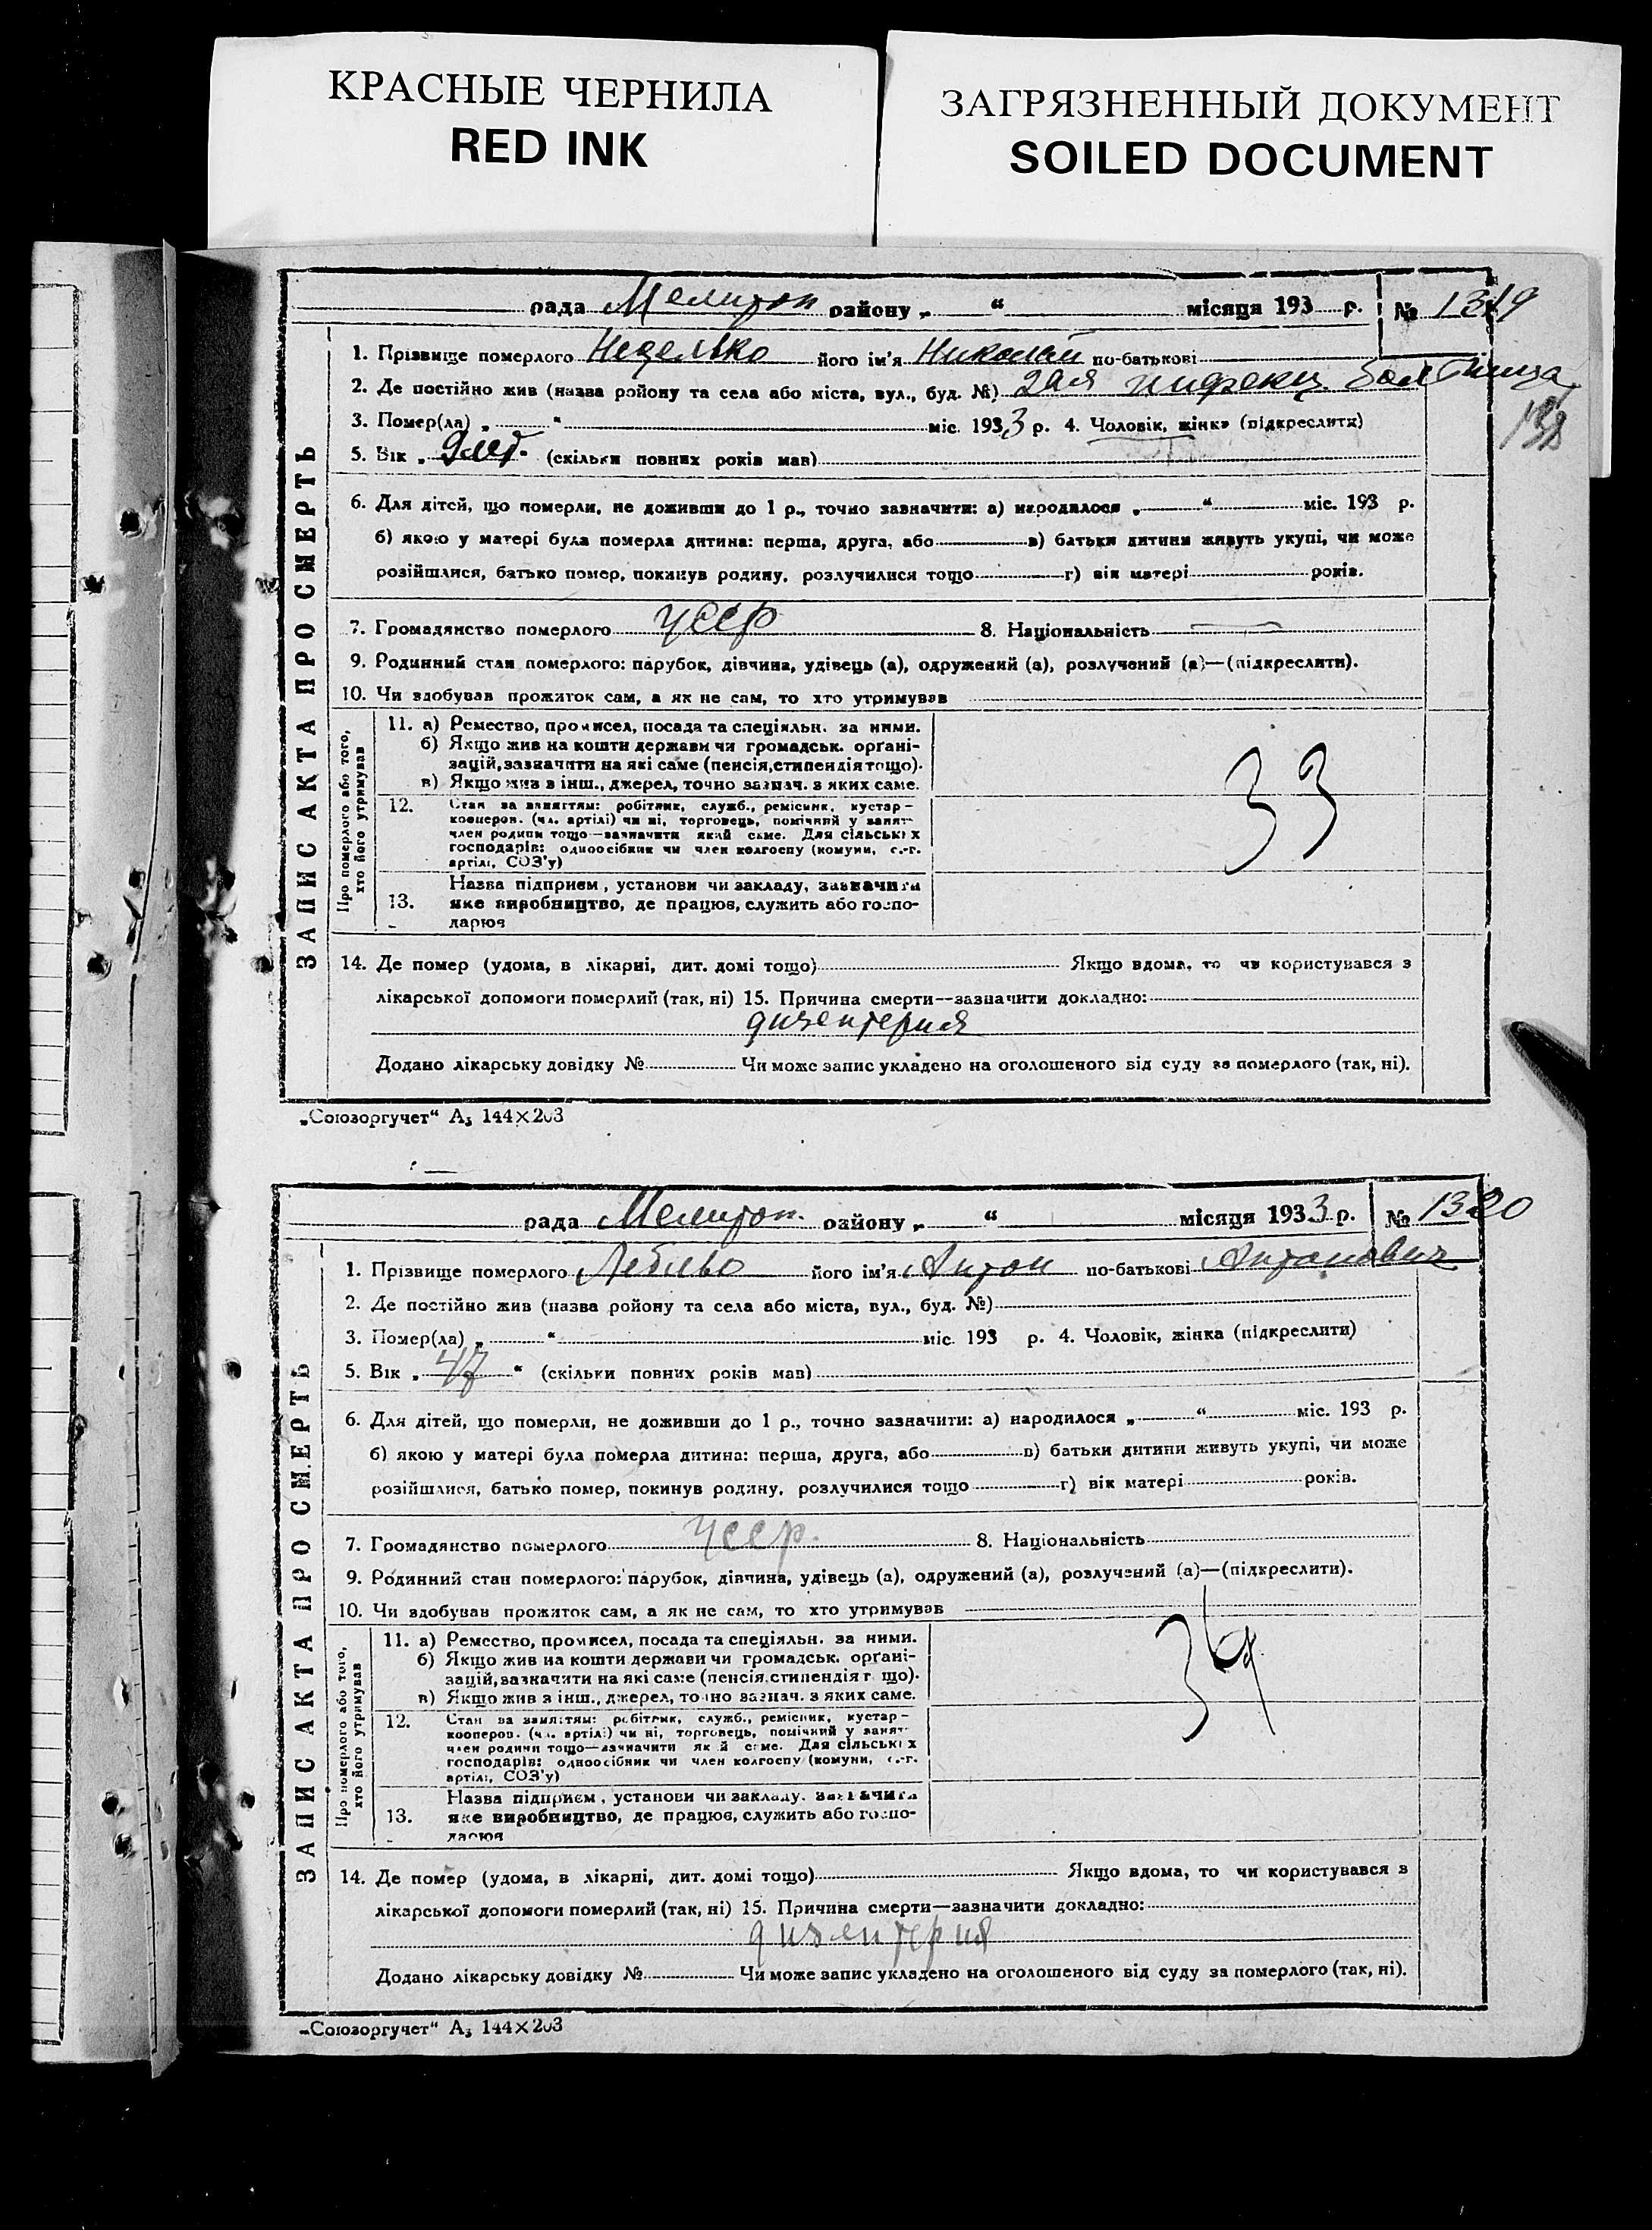 КРАСНЫЕ ЧЕРНИЛА
RED INK
ЗАГРЯЗНЕННЫЙ ДОКУМЕНТ
SOILED DOCUMENT
рада Мелитоп району „ “ місяця 193 р. № 1319
138
ЗАПИС АКТА ПРО СМЕРТЬ
1. Прізвище померлого Неделько його ім'я Николай по-батькові
2. Де постійно жив (назва ройону та села або міста, вул., буд. №) 2ая инфекц. больница
3. Помер(ла) „ “ міс. 1933 р. 4. Чоловік, жінка (підкреслити)
5. Вік „ 9 лет. (скільки повних років мав)
6. Для дітей, що померли, не доживши до 1 р., точно зазначити: а) народилося „ “ міс. 193 р.
б) якою у матері була померла дитина: перша, друга, або в) батьки дитини живуть укупі, чи може
розійшлися, батько помер, покинув родину, розлучилися тощо г) вік матері років.
7. Громадянство померлого УССР 8. Національність
9. Родинний стан померлого: парубок, дівчина, удівець (а), одружений (а), розлучений (а)—(підкреслити).
10. Чи здобував прожиток сам, а як не сам, то хто утримував
Про померлого або того, хто його утримував
11. а) Ремество, промисел, посада та спеціяльн. за ними.
б) Якщо жив на кошти держави чи громадськ. орґані-
зацій, зазначити на які саме (пенсія, стипендія тощо).
в) Якщо жив з інш., джерел, точно зазнач. з яких саме.
33
12. Стан за заняттям: робітник, служб., ремісник, кустар-
кооперов. (чл. артілі) чи ні, торговець, помічний у занят
член родини тощо—зазначити який саме. Для сільськіх
господарів: одноосібник чи член колгоспу (комуни, с.-г.
артілі, СОЗ'у)
13. Назва підприєм, установи чи закладу, зазначити
яке виробництво, де працює, служить або госпо-
дарює
14. Де помер (удома, в лікарні, дит. домі тощо) Якщо вдома, то чи користувався з
лікарської допомоги померлий (так, ні) 15. Причина смерти—зазначити докладно:
дизентерия
Додано лікарську довідку № Чи може запис укладено на оголошеного від суду за померлого (так, ні).
„Союзоргучет“ А₅ 144×203
рада Мелитоп. району „ “ місяця 1933 р. № 1320
ЗАПИС АКТА ПРО СМЕРТЬ
1. Прізвище померлого його ім'я Антон по-батькові Антонович
2. Де постійно жив (назва ройону та села або міста, вул., буд. №)
3. Помер(ла) „ “ міс. 193 р. 4. Чоловік, жінка (підкреслити)
5. Вік „ 47 “ (скільки повних років мав)
6. Для дітей, що померли, не доживши до 1 р., точно зазначити: а) народилося „ “ міс. 193 р.
б) якою у матері була померла дитина: перша, друга, або в) батьки дитини живуть укупі, чи може
розійшлися, батько помер, покинув родину, розлучилися тощо г) вік матері років.
7. Громадянство померлого УССР. 8. Національність
9. Родинний стан померлого: парубок, дівчина, удівець (а), одружений (а), розлучений (а)—(підкреслити).
10. Чи здобував прожиток сам, а як не сам, то хто утримував
Про померлого або того, хто його утримував
11. а) Ремество, промисел, посада та спеціяльн. за ними.
б) Якщо жив на кошти держави чи громадськ. орґані-
зацій, зазначити на які саме (пенсія, стипендія т що).
в) Якщо жив з інш., джерел, точно зазнач. з яких саме.
12. Стан за заняттям: робітник, служб., ремісник, кустар-
кооперов. (чл. артілі) чи ні, торговець, помічний у занят
член родини тощо—зазначити який саме. Для сільськіх
господарів: одноосібник чи член колгоспу (комуни, с.-г.
артілі, СОЗ'у)
13. Назва підприєм, установи чи закладу, зазначити
яке виробництво, де працює, служить або госпо-
дарює
14. Де помер (удома, в лікарні, дит. домі тощо) Якщо вдома, то чи користувався з
лікарської допомоги померлий (так, ні) 15. Причина смерти—зазначити докладно:
дизентерия
Додано лікарську довідку № Чи може запис укладено на оголошеного від суду за померлого (так, ні).
„Союзоргучет“ А₅ 144×203